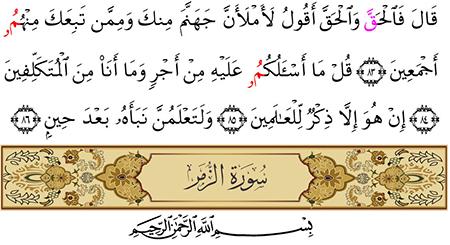 قَالَ فَٱلْحَقَّ وَٱلْحَقَّ أَقُولُ لَأَمْلَأَنَّ جَهَنَّمَ مِنكَ وَمِمَّن تَبِعَكَ مِنْهُمُۥ
أَجْمَعِينَ ٨٣ قُلْ مَا أَسْـَٔلُكُمُۥ عَلَيْهِ مِنْ أَجْرٍ وَمَا أَنَا۠ مِنَ ٱلْمُتَكَلِّفِينَ
٨٤ إِنْ هُوَ إِلَّا ذِكْرٌ لِّلْعَـٰلَمِينَ ٨٥ وَلَتَعْلَمُنَّ نَبَأَهُۥ بَعْدَ حِينٍ ٨٦
سُورَةُ الزُّمَرِ
بِسْمِ ٱللَّهِ ٱلرَّحْمَـٰنِ ٱلرَّحِيمِ